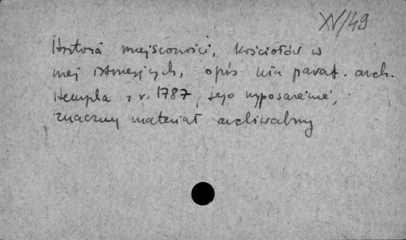 XV/49
Historia miejscowości, kościołów w
niej istniejących, opis kła paraf. arch.
Hempla z r. 1787, jego wyposażenie,
znaczny materiał archiwalny